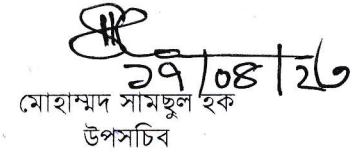 ১৭/০৪/২৩
মোহাম্মদ সামছুল হক
উপসচিব